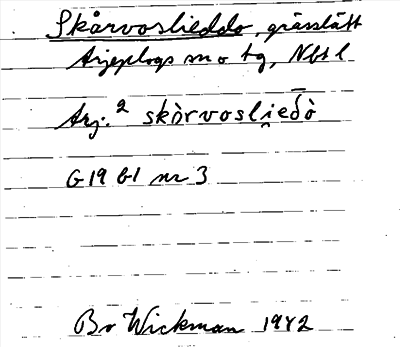 Skårvoslieddo, grässlätt
Arjeplogs sn o tg, Nbt l
Arj.² skȯ̀rvosli̯eδ̄ò
G 19 bl nr 3
Bo Wickman 1942